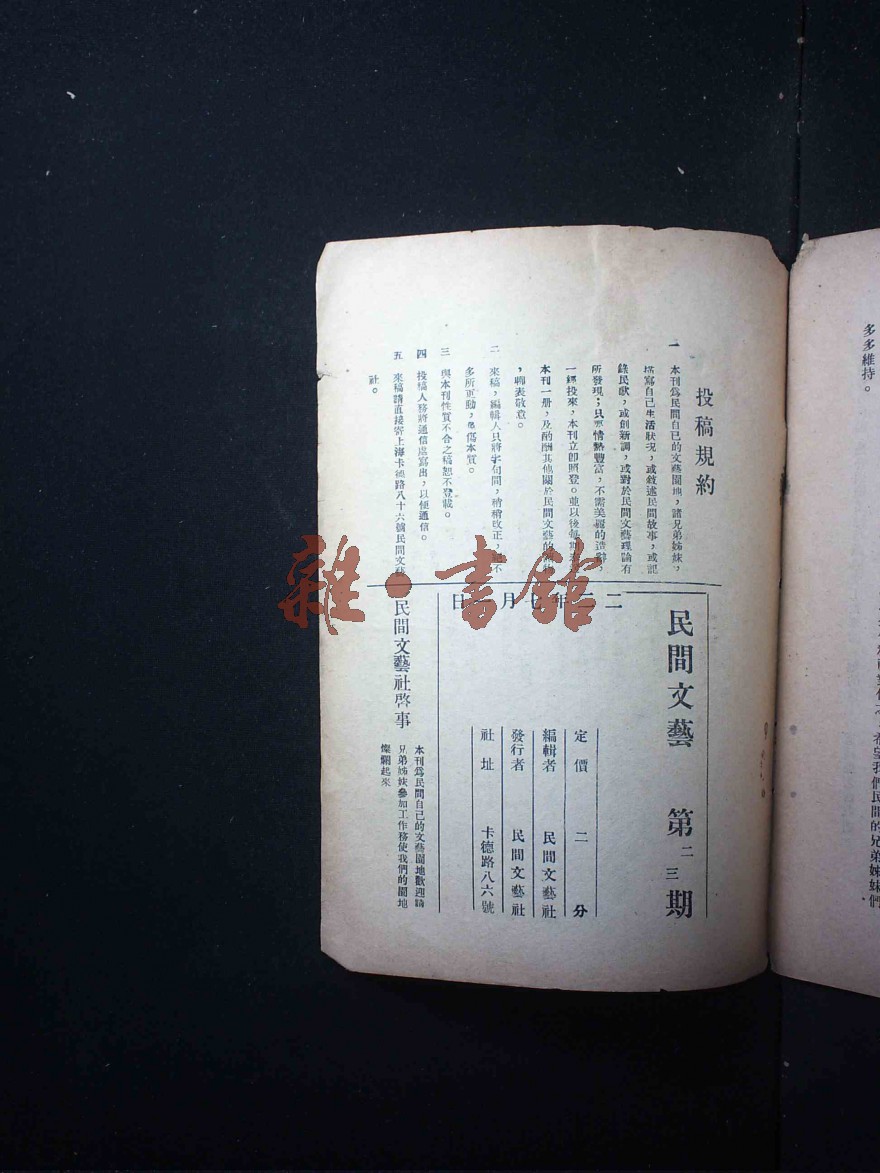 投稿規約
一 本刊爲民間自己的文藝園地,諸兄弟姊妹,
描寫自己生活狀況,或敘述民間故事,或記
錄民歌,或創新調,或對於民間文藝理論有
所發現;只要情熱豐富,不需美麗的造辭,
一經投來,本刊立卽照登。並以後每期
本刊一册,及酌酬其他關於民間文藝的
,聊表敬意。
二 來稿,編輯人只將字句間,稍稍改正,不
多所更動,傷本質。
三 與本刊性質不合之稿恕不登載。
四 投稿人務將通信處寫出,以便通信。
五 來稿請直接寄上海卡德路八十六號民間文藝
社。
民間文藝 第二三期
二 年七月 日
定價 二分
編輯者 民間文藝社
發行者 民間文藝社
社址 卡德路八六號
民間文藝社啓事
本刊爲民間自己的文藝園地歡迎諸
兄弟姊妹參加工作務使我們的園地
燦爛起來
多多維持。
希望我們民間的兄弟姊妹們
雜·書館